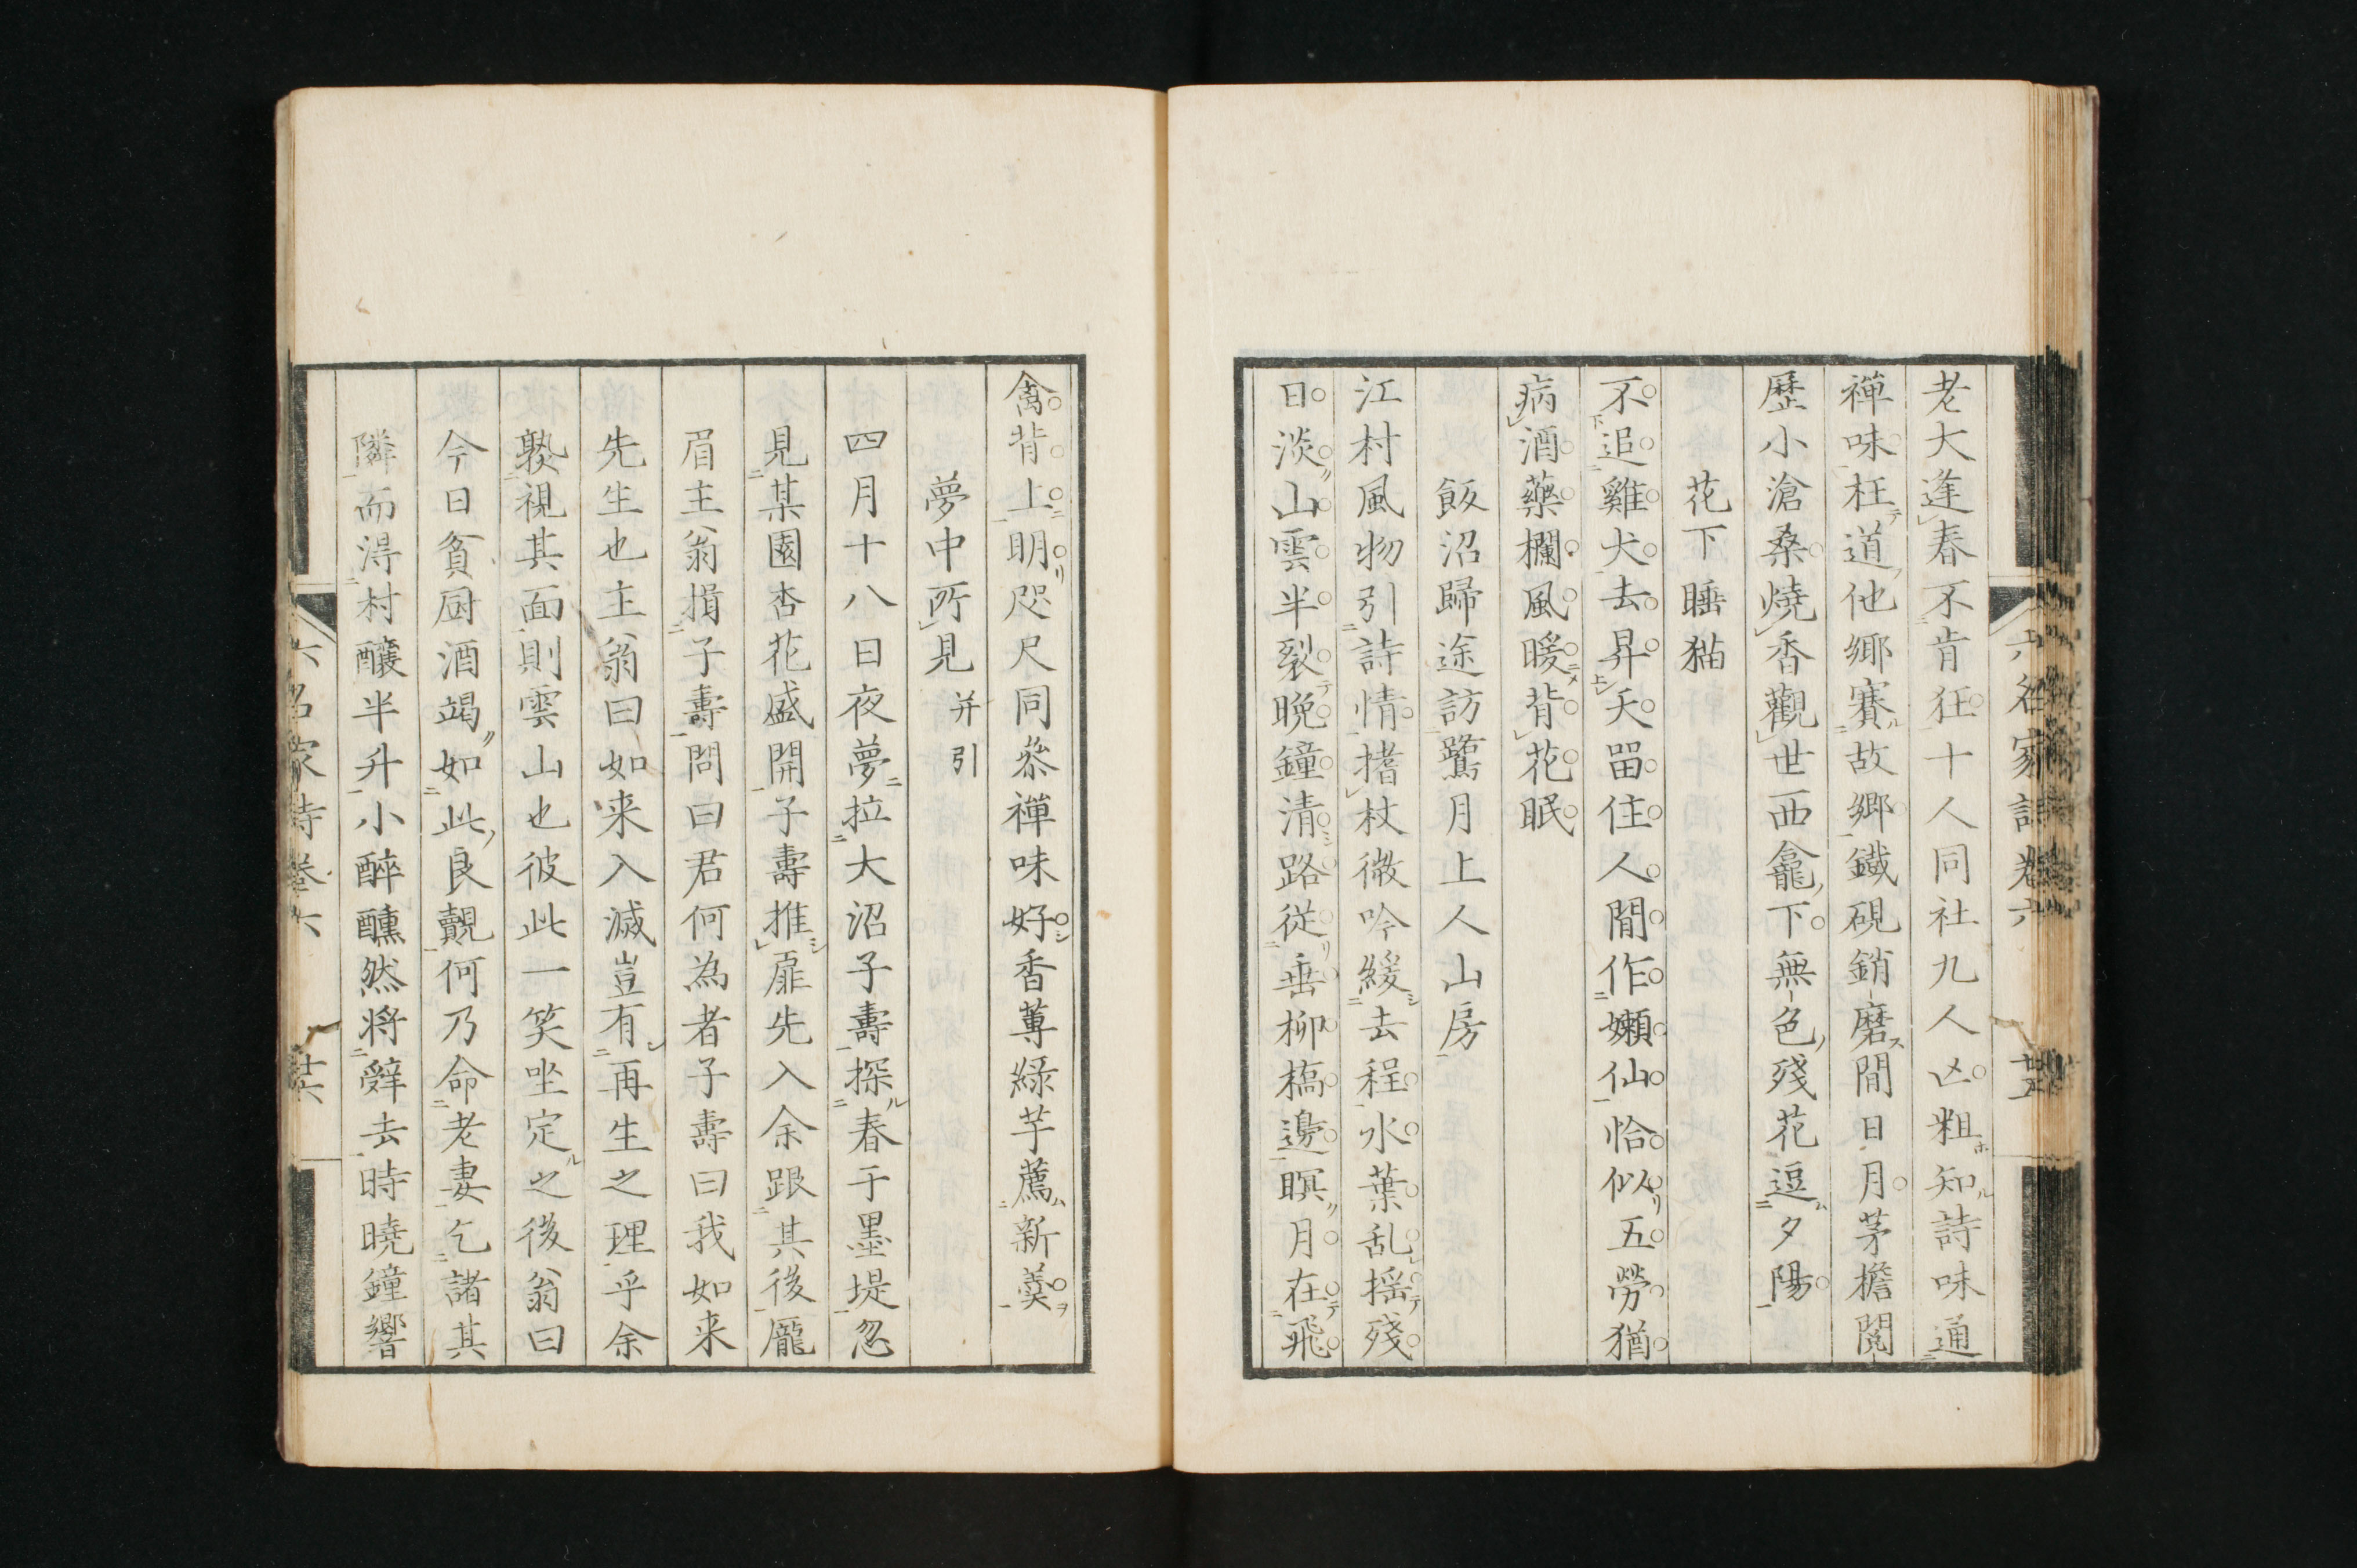 六名家詩卷六 廿五
老大逢春不肯狂十人同社九人亡粗知詩味通
禪味枉道他鄉賽故鄉鐵硯銷磨閒日月茅檐閱
歷小滄桑燒香觀世西龕下無色殘花逗夕陽
花下睡猫
不追雞犬去昇天留住人間作嬾仙恰似五勞猶
病酒藥欄風暖背花眠
飯沼歸途訪鷺月上人山房
江村風物引詩情搘杖微吟緩去程水葉乱搖殘
日淡山雲半裂晩鐘清路從垂柳橋邊暝月在飛
禽背上明咫尺同叅禪味好香蓴綠芋薦新羹
夢中所見 并引
四月十八日夜夢拉大沼子壽探春于墨堤忽
見某園杏花盛開子壽推扉先入余跟其後龐
眉主翁揖子壽問曰君何為者子壽曰我如来
先生也主翁曰如来入滅豈有再生之理乎余
熟視其面則雲山也彼此一笑坐定之後翁曰
今日貧厨酒竭如此良覿何乃命老妻乞諸其
隣而得村釀半升小醉醺然将辤去時曉鐘響
六名家詩卷六 廿六